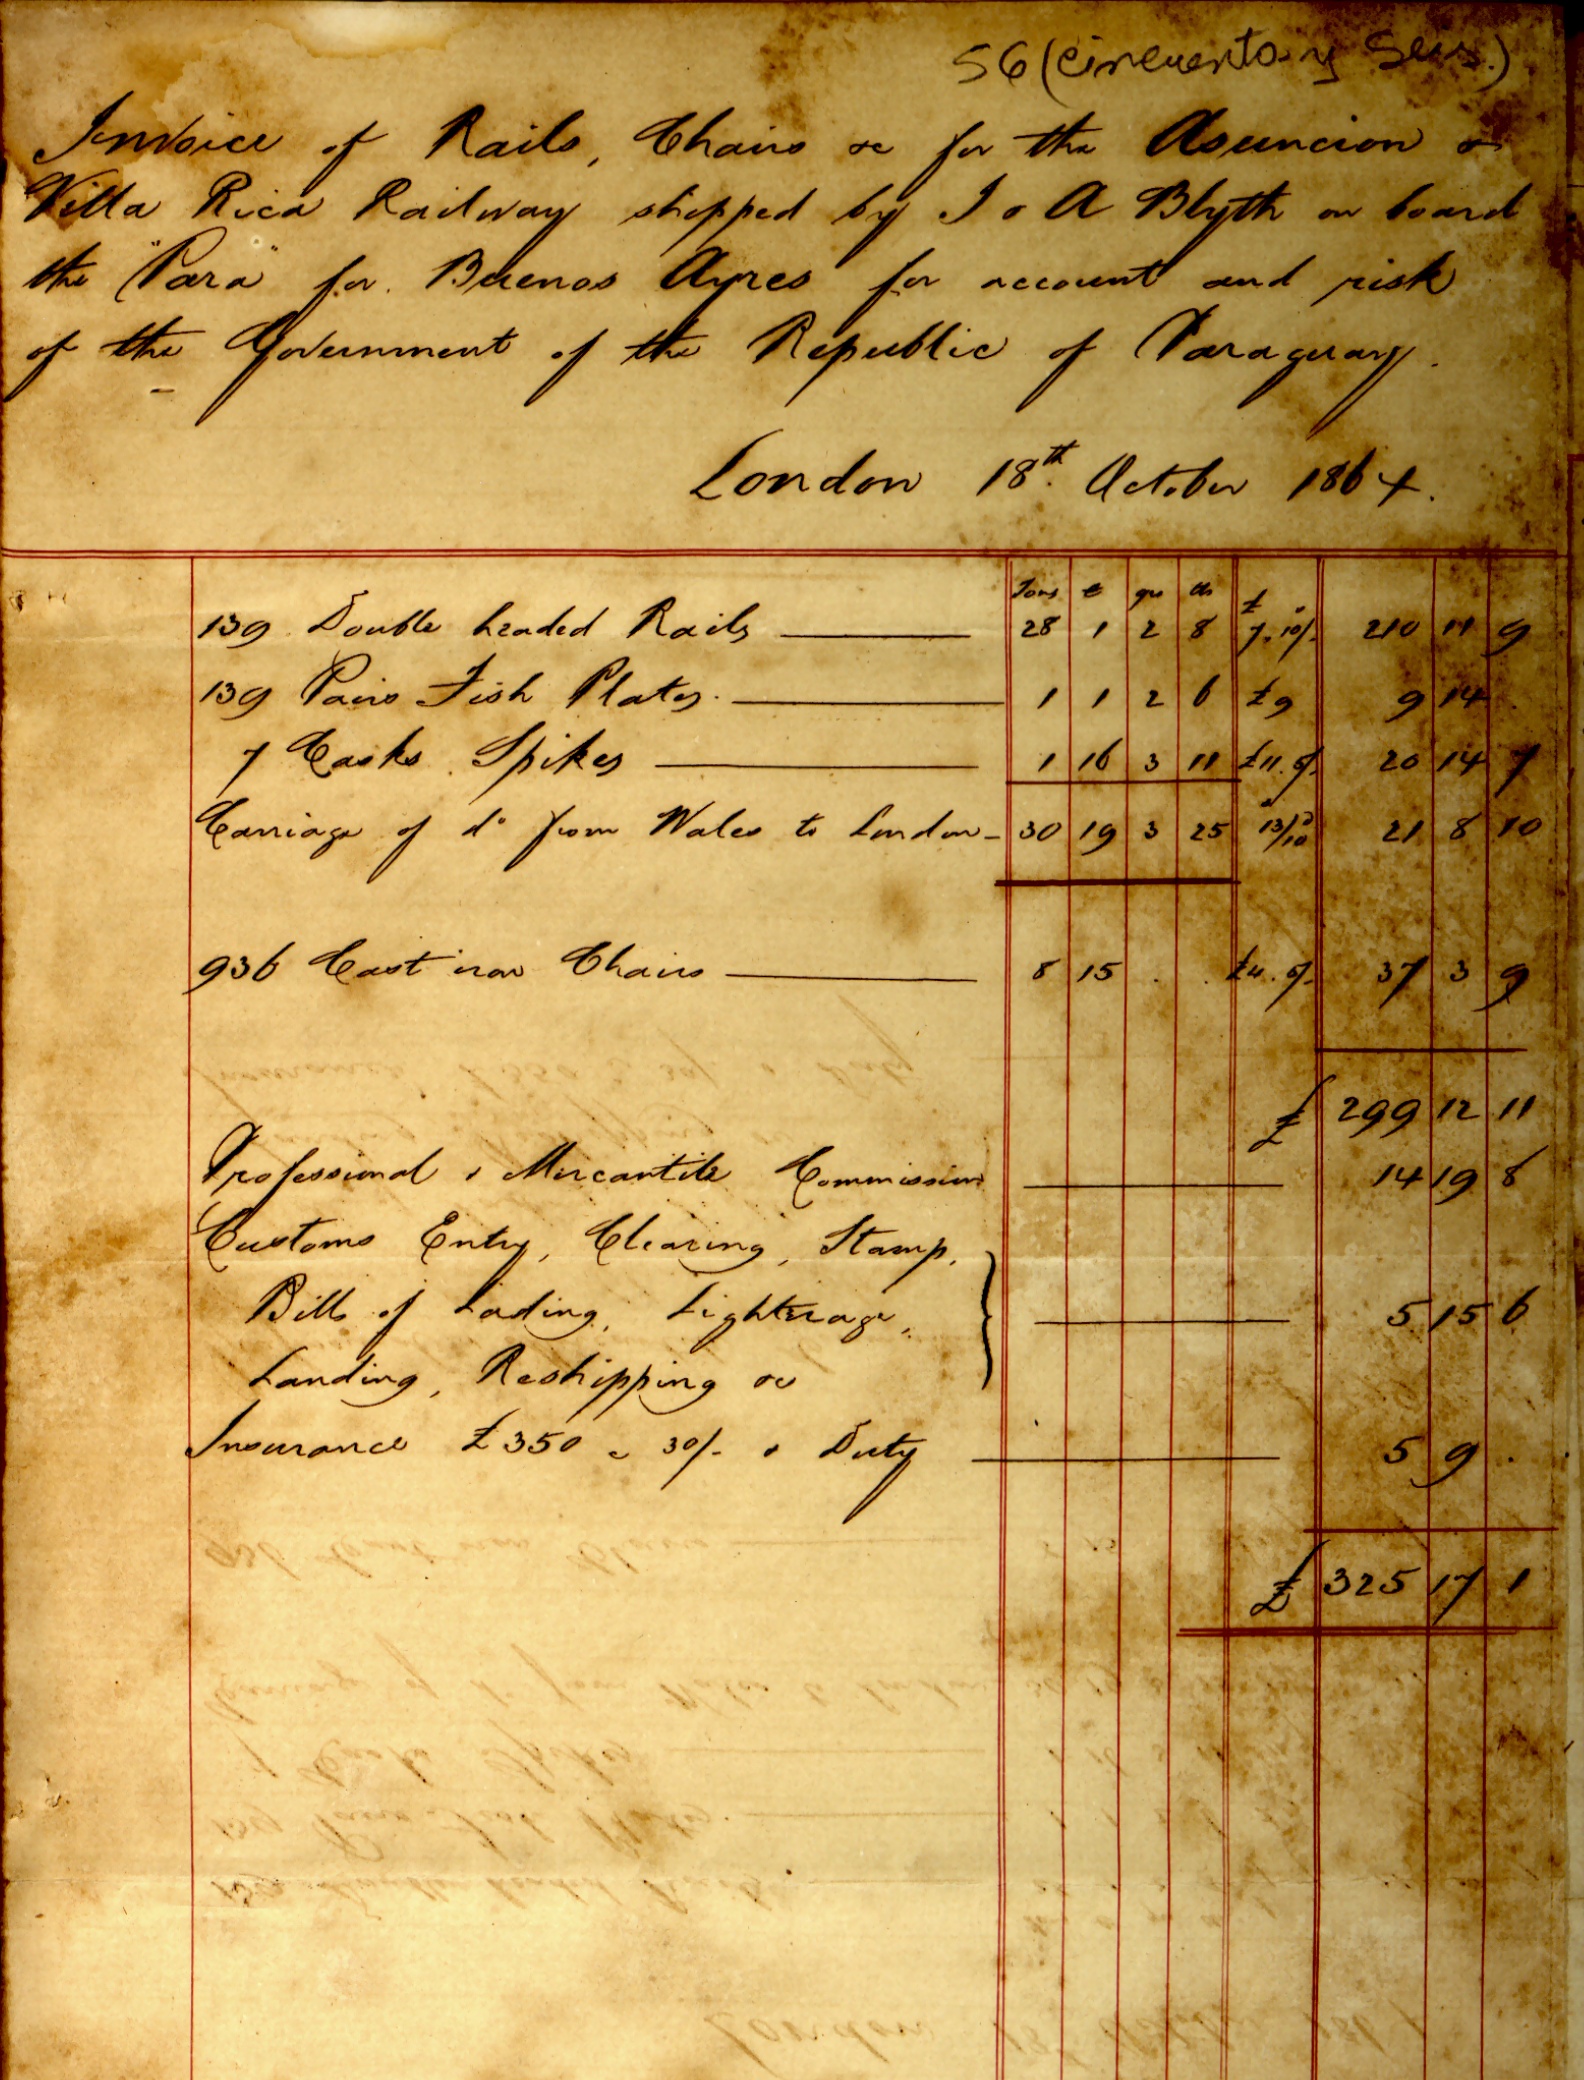 56 (cincuenta y seis.)
Invoice of Rails, Chairs &c for the Asuncion &
Villa Rica Railway shipped by J & A Blyth on board
the "Para" for Buenos Ayres for account and risk
of the Government of the Republic of Paraguay.
London 18th October 1864.
Tons c qrs lbs £
139 Double headed Rails 28 1 2 8 7.10/- 210 11 9
139 Pairs Fish Plates. 1 1 2 6 £9 9 14
7 Casks Spikes 1 16 3 11 £11.5/- 20 14 7
Carriage of do from Wales to London 30 19 3 25 13/10 21 8 10
936 Cast iron Chairs 8 15 . . £4.5/- 37 3 9
£ 299 12 11
Professional & Mercantile Commission 14 19 8
Customs Entry, Clearing, Stamp,
Bills of Lading, Lighterage, 5 15 6
Landing, Reshipping &c
Insurance £350 @ 30/- & Duty 5 9 .
£ 325 17 1